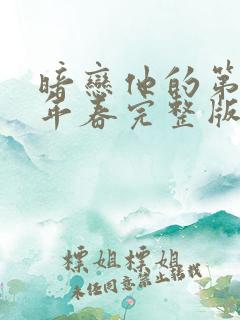 暗戀他的第
年春完整版
標姐標姐
未经同意禁止转载